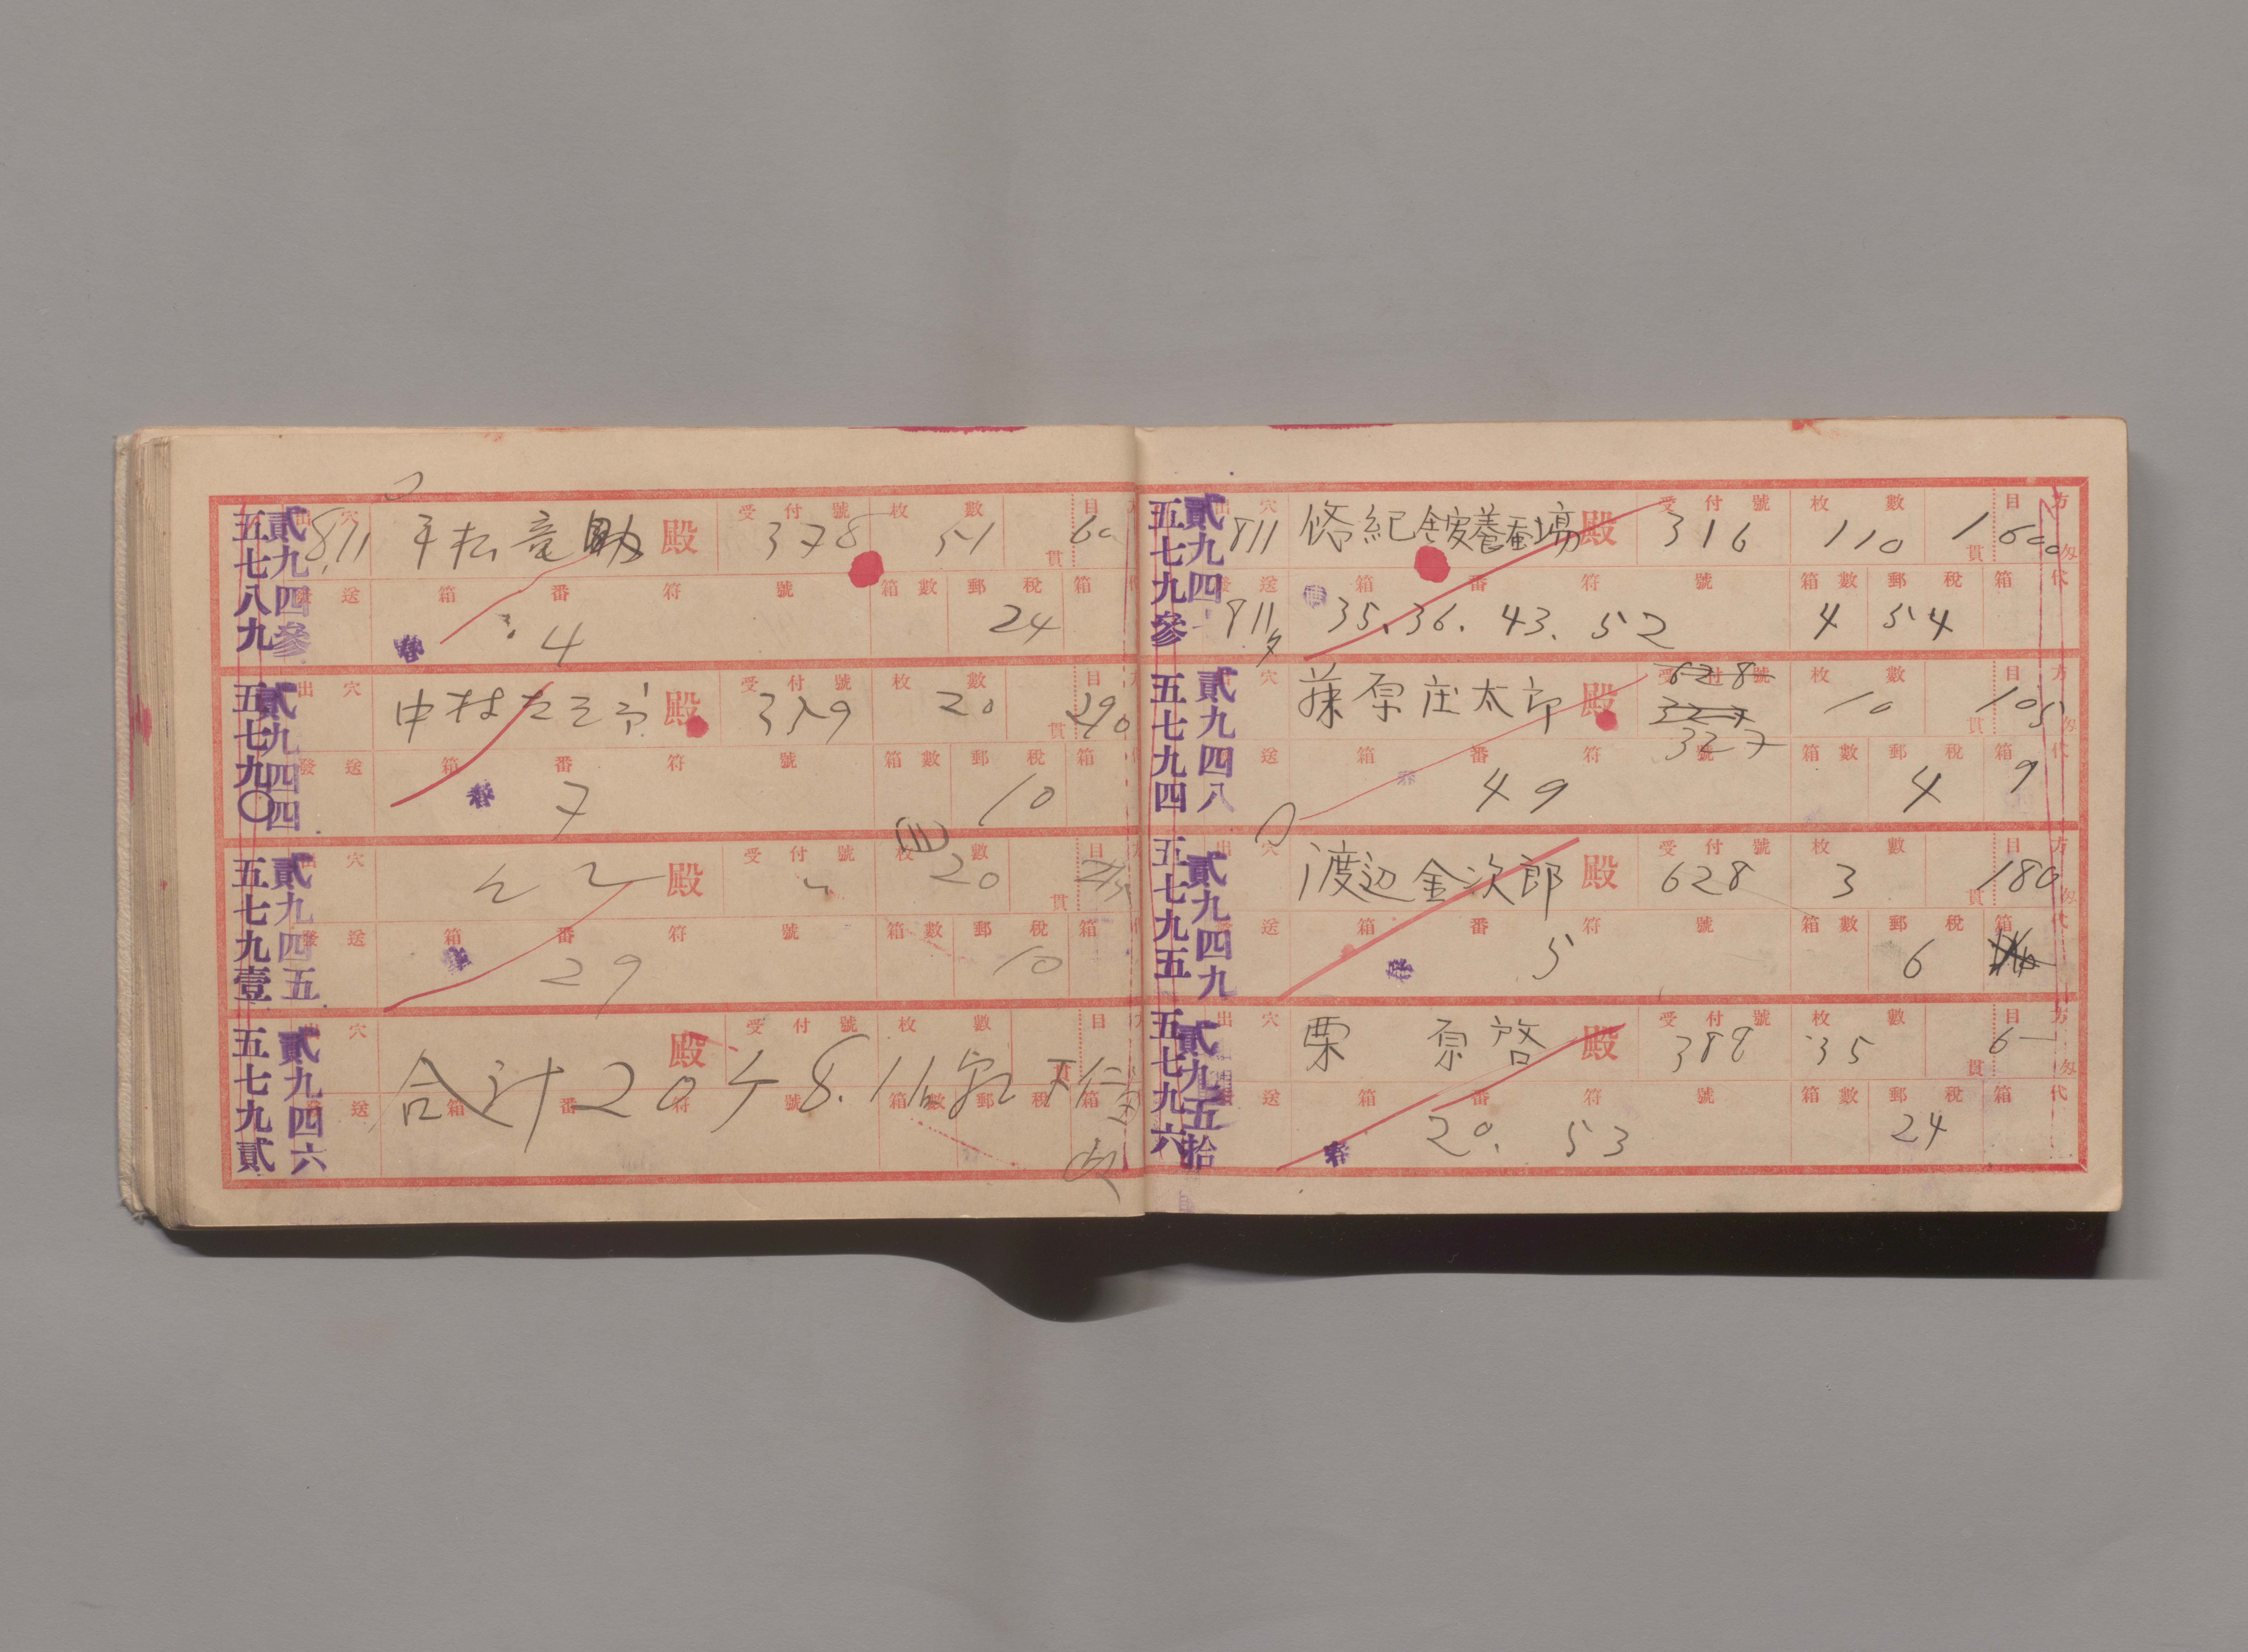 五七八九 貳九四參
出穴 8,11 平松竜助 殿 受付號 378 枚數 51 貫 目 60
發送 箱番符號 春 3. 4 箱數 郵税 24 箱
五七九〇 貳九四四
出穴 中村 殿 受付號 379 枚數 20 貫 目 290
發送 箱番符號 春 7 箱數 郵税 10 箱
五七九壹 貳九四五
出穴 殿 受付號 〃 枚數 (三) 20 貫 目
發送 箱番符號 春 29 箱數 郵税 10 箱
五七九貳 貳九四六
出穴 殿 受付號 枚數 貫 目
合計20ケ 8.16
發送 箱番符號 箱數 郵税 箱
五七九參 貳九四
出穴 811 養蚕場 殿 受付號 316 枚數 110 方目 1貫600匁
發送 811夕 箱番符號 春 35. 36. 43. 52 箱數 4 郵税 54 箱代
五七九四 貳九四八
出穴 藤原庄太郎 殿 受付號 628 327 327 枚數 10 貫 方目 105匁
發送 箱番符號 春 49 箱數 郵税 4 箱代 9
五七九五 貳九四九
出穴 渡辺金次郎 殿 受付號 628 枚數 3 貫 方目 180匁
發送 箱番符號 春 5 箱數 郵税 6 箱代
五七九六 貳九五拾
出穴 栗原啓 殿 受付號 388 枚數 35 貫 方目 6一匁
發送 箱番符號 春 20. 53 箱數 郵税 24 箱代